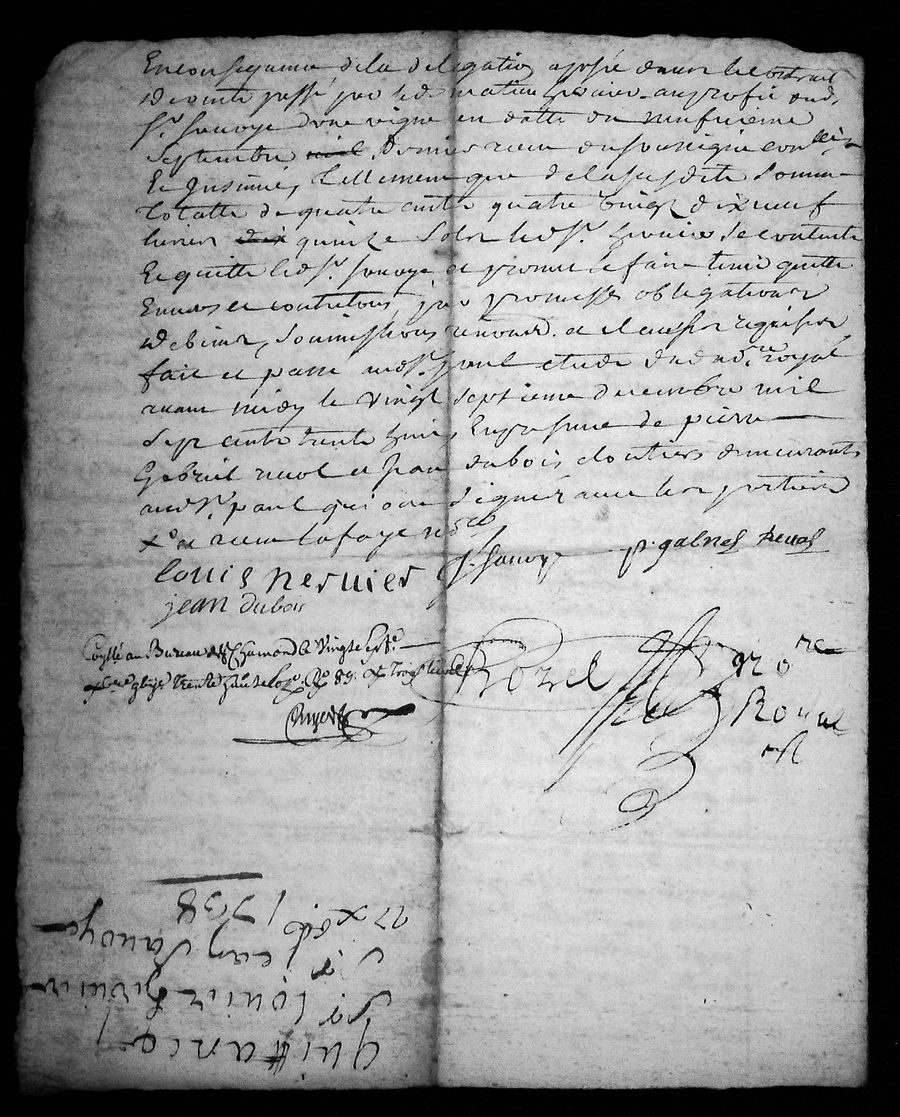 En consequence de la delegation aposée dans le contrat
de vente passé par led. mathieu au profit dud.
Sr. Sauvoye d'une vigne en datte du neufvieme
Septembre mil dernier receu du soussigné controllé
Et Insinué, tellement que de la susdite Somme
totalle de quatre cents quatre vingt dix neuf
livres dix quinze Sols led. Sr. se contente
Et quitte led. Sr. Sauvoye et promet le faire tenir quitte
Envers et contre tous, par promesses obligations
de biens, Soumissions, renond. et clauses requises
fait et passé aud. St. paul etude dud. nore. royal
avant midy le vingt Septieme decembre mil
Sept cents trente huit, En presence de pierre
Gabriel et jean dubois cloutiers demeurants
aud. St. paul qui ont Signé avec les parties
et receu lafaye nore.
Louis nervier J. Sauvoye p. gabriel
jean dubois
Collé au Bureau de St Chamond le Vingt Sept
trente huit fo. 89.
Rozel nore
Royal
quittance
Sr louis
Sr jean Sauvoye
27 xbre 1738